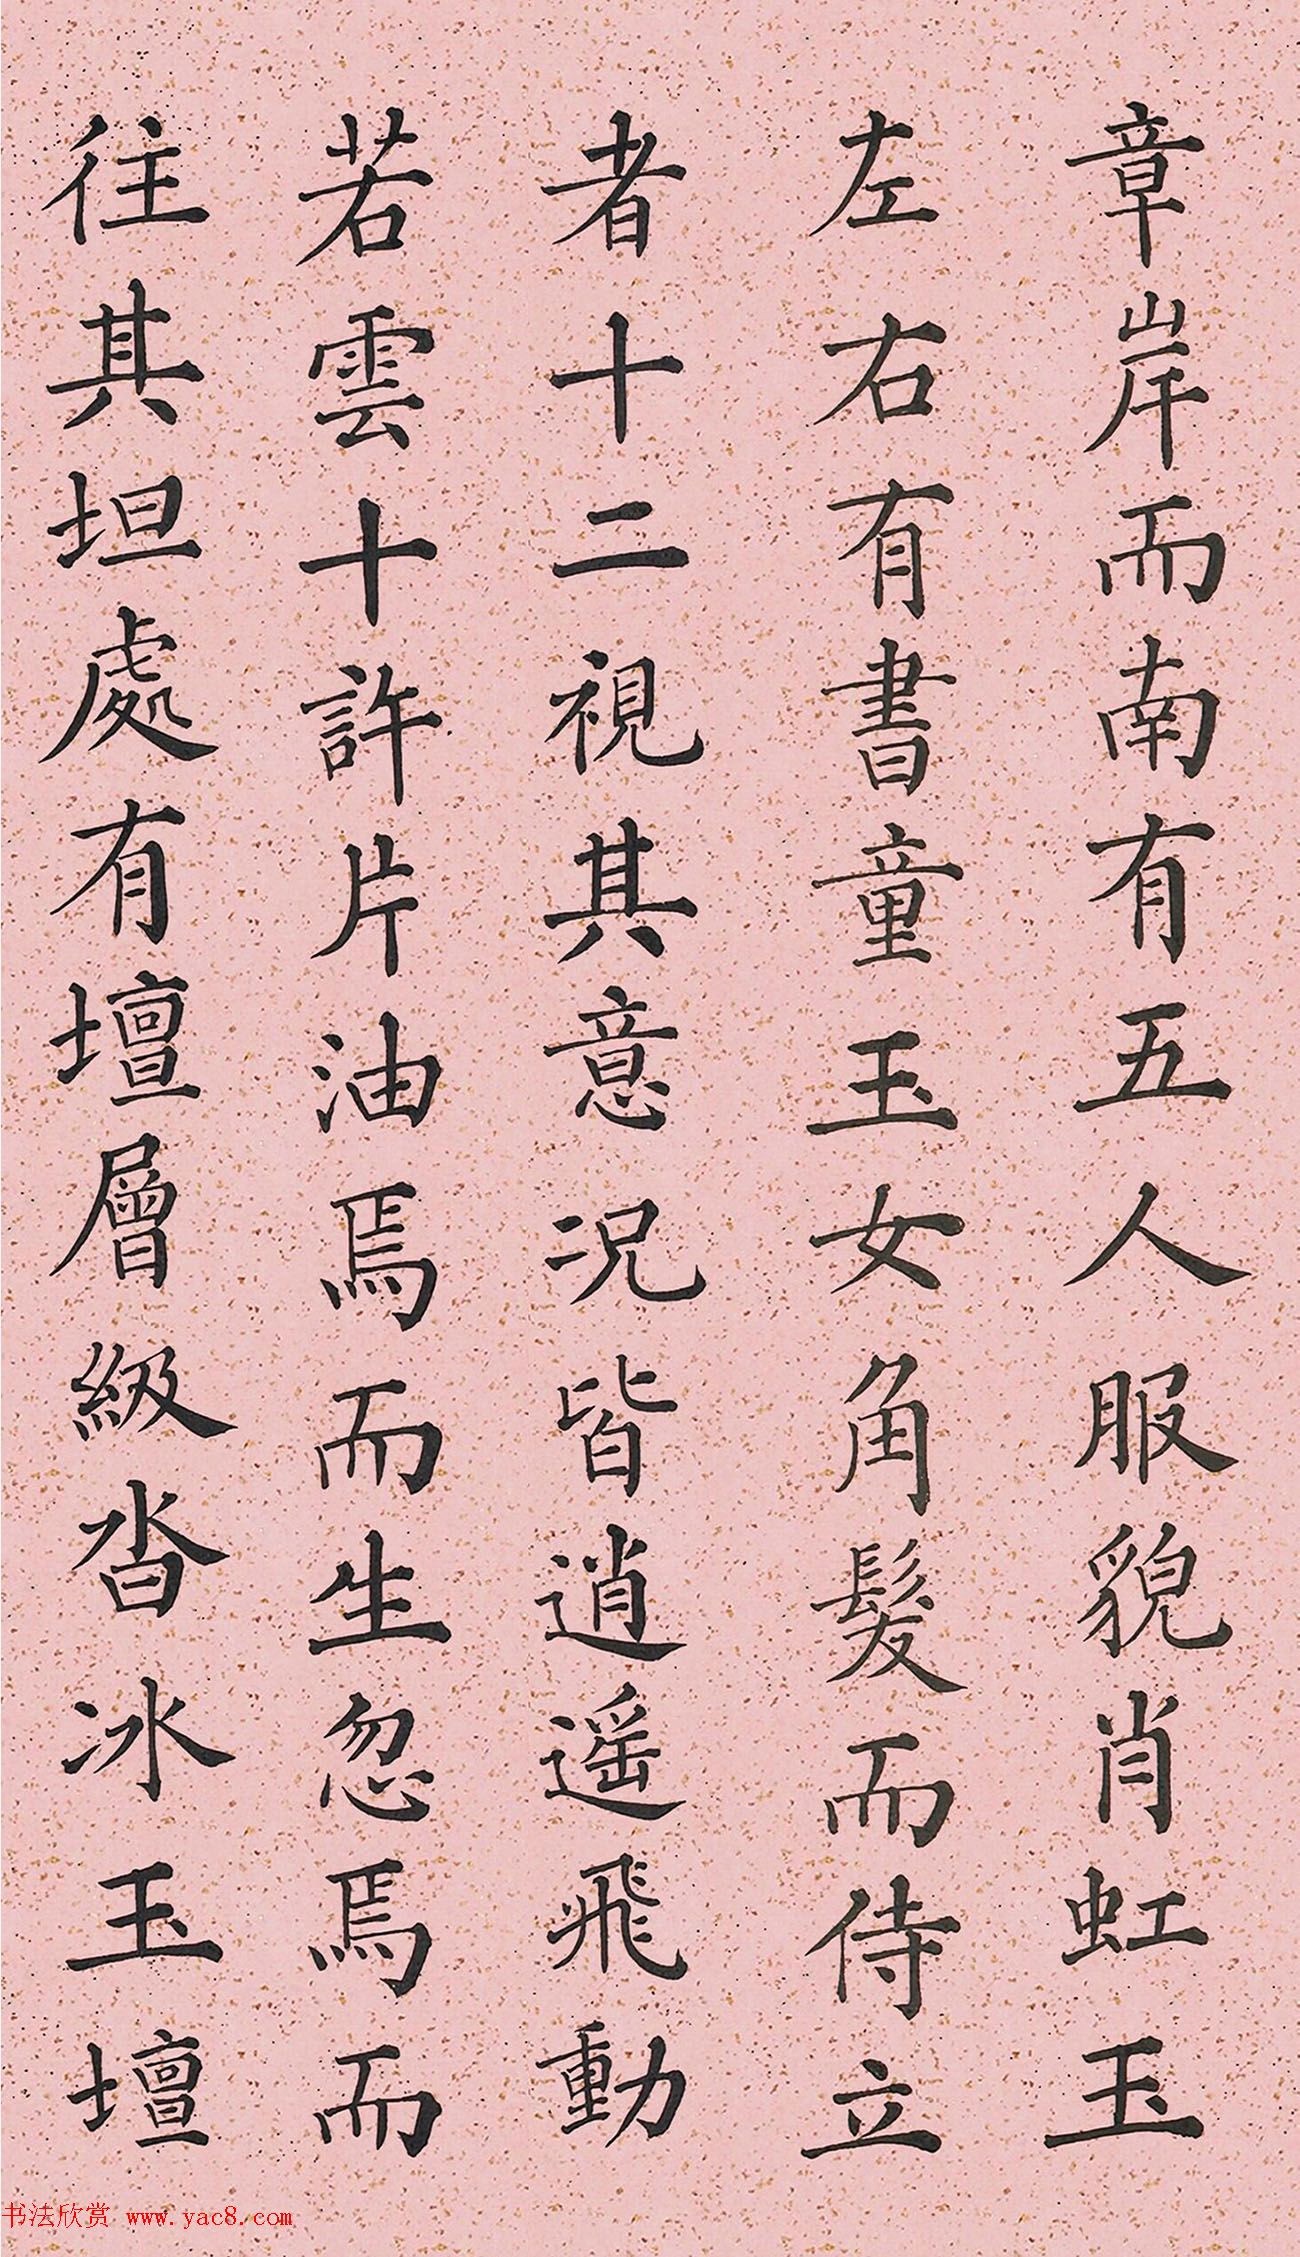 章岸而南有五人服貌肖虹玉
左右有書童玉女角髮而侍立
者十二視其意况皆逍遥飛動
若雲十許片油焉而生忽焉而
往其坦處有壇層級沓冰玉壇
书法欣赏 www.yac8.com